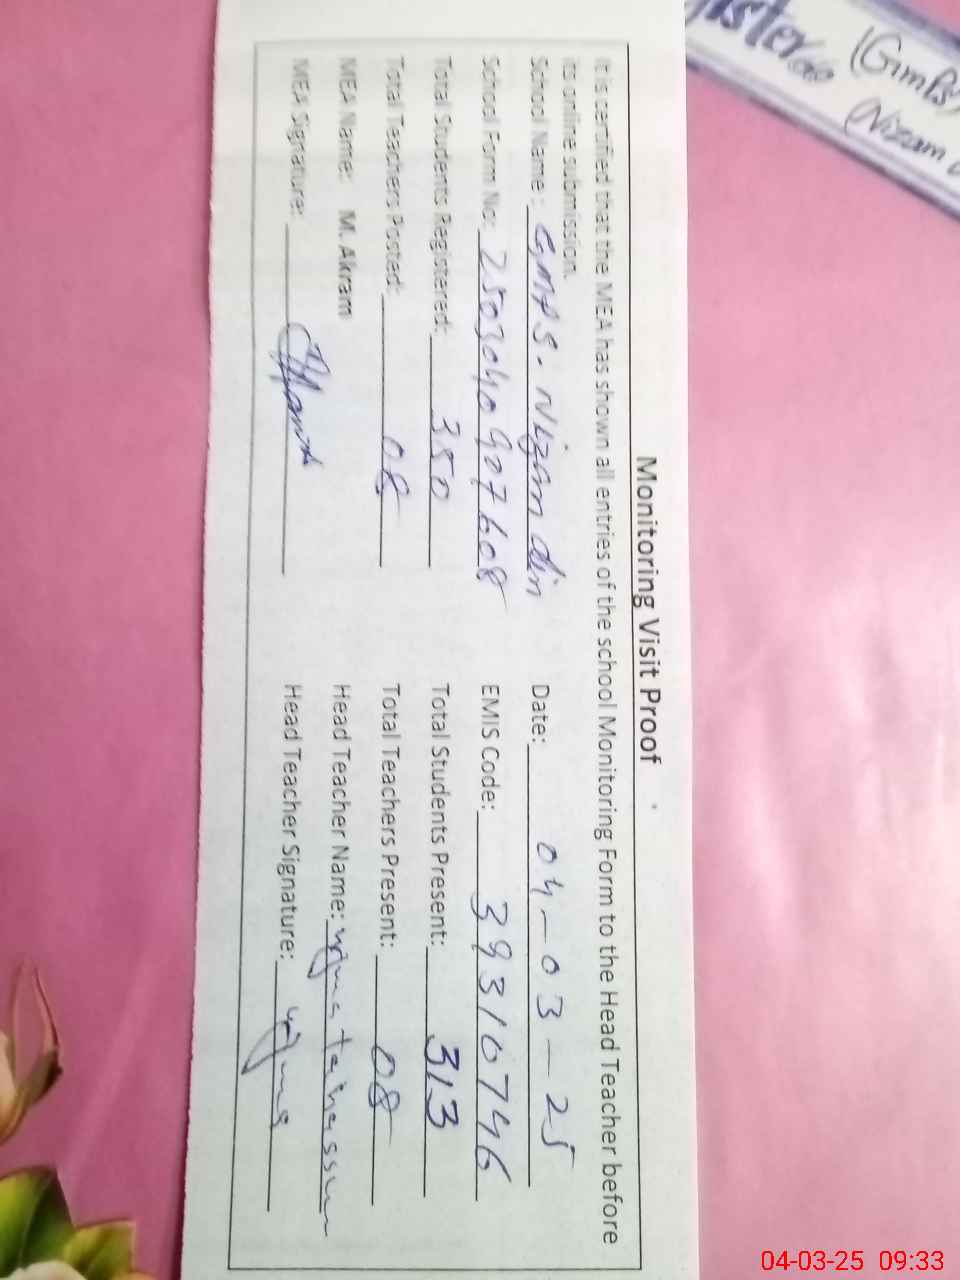 Monitoring Visit Proof
It is certified that the MEA has shown all entries of the school Monitoring Form to the Head Teacher before
its online submission.
School Name: GMPS. Nizam din Date: 04-03-25
School Form No: 2503040907608 EMIS Code: 39310746
Total Students Registered: 350 Total Students Present: 313
Total Teachers Posted: 08 Total Teachers Present: 08
MEA Name: M. Akram Head Teacher Name:
MEA Signature: Head Teacher Signature:
(Gmps)
(Nizam
04-03-25 09:33